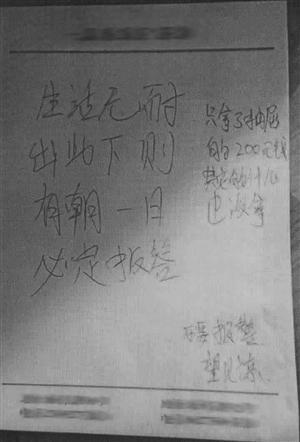 生活无耐
出此下则
有朝一日
必定报答
只拿了抽屉
的200元钱
其它的什么
也没拿
不要报警
望见谅